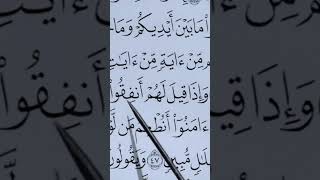 مَا بَيْنَ أَيْدِيكُمْ وَمَا
مِّنْ ءَايَةٍ مِّنْ ءَايَـٰتِ
وَإِذَا قِيلَ لَهُمْ أَنفِقُوا۟
ءَامَنُوٓا۟ أَنُطْعِمُ مَن لَّوْ
لَـٰلٍ مُّبِينٍ ٤٧ وَيَقُولُونَ